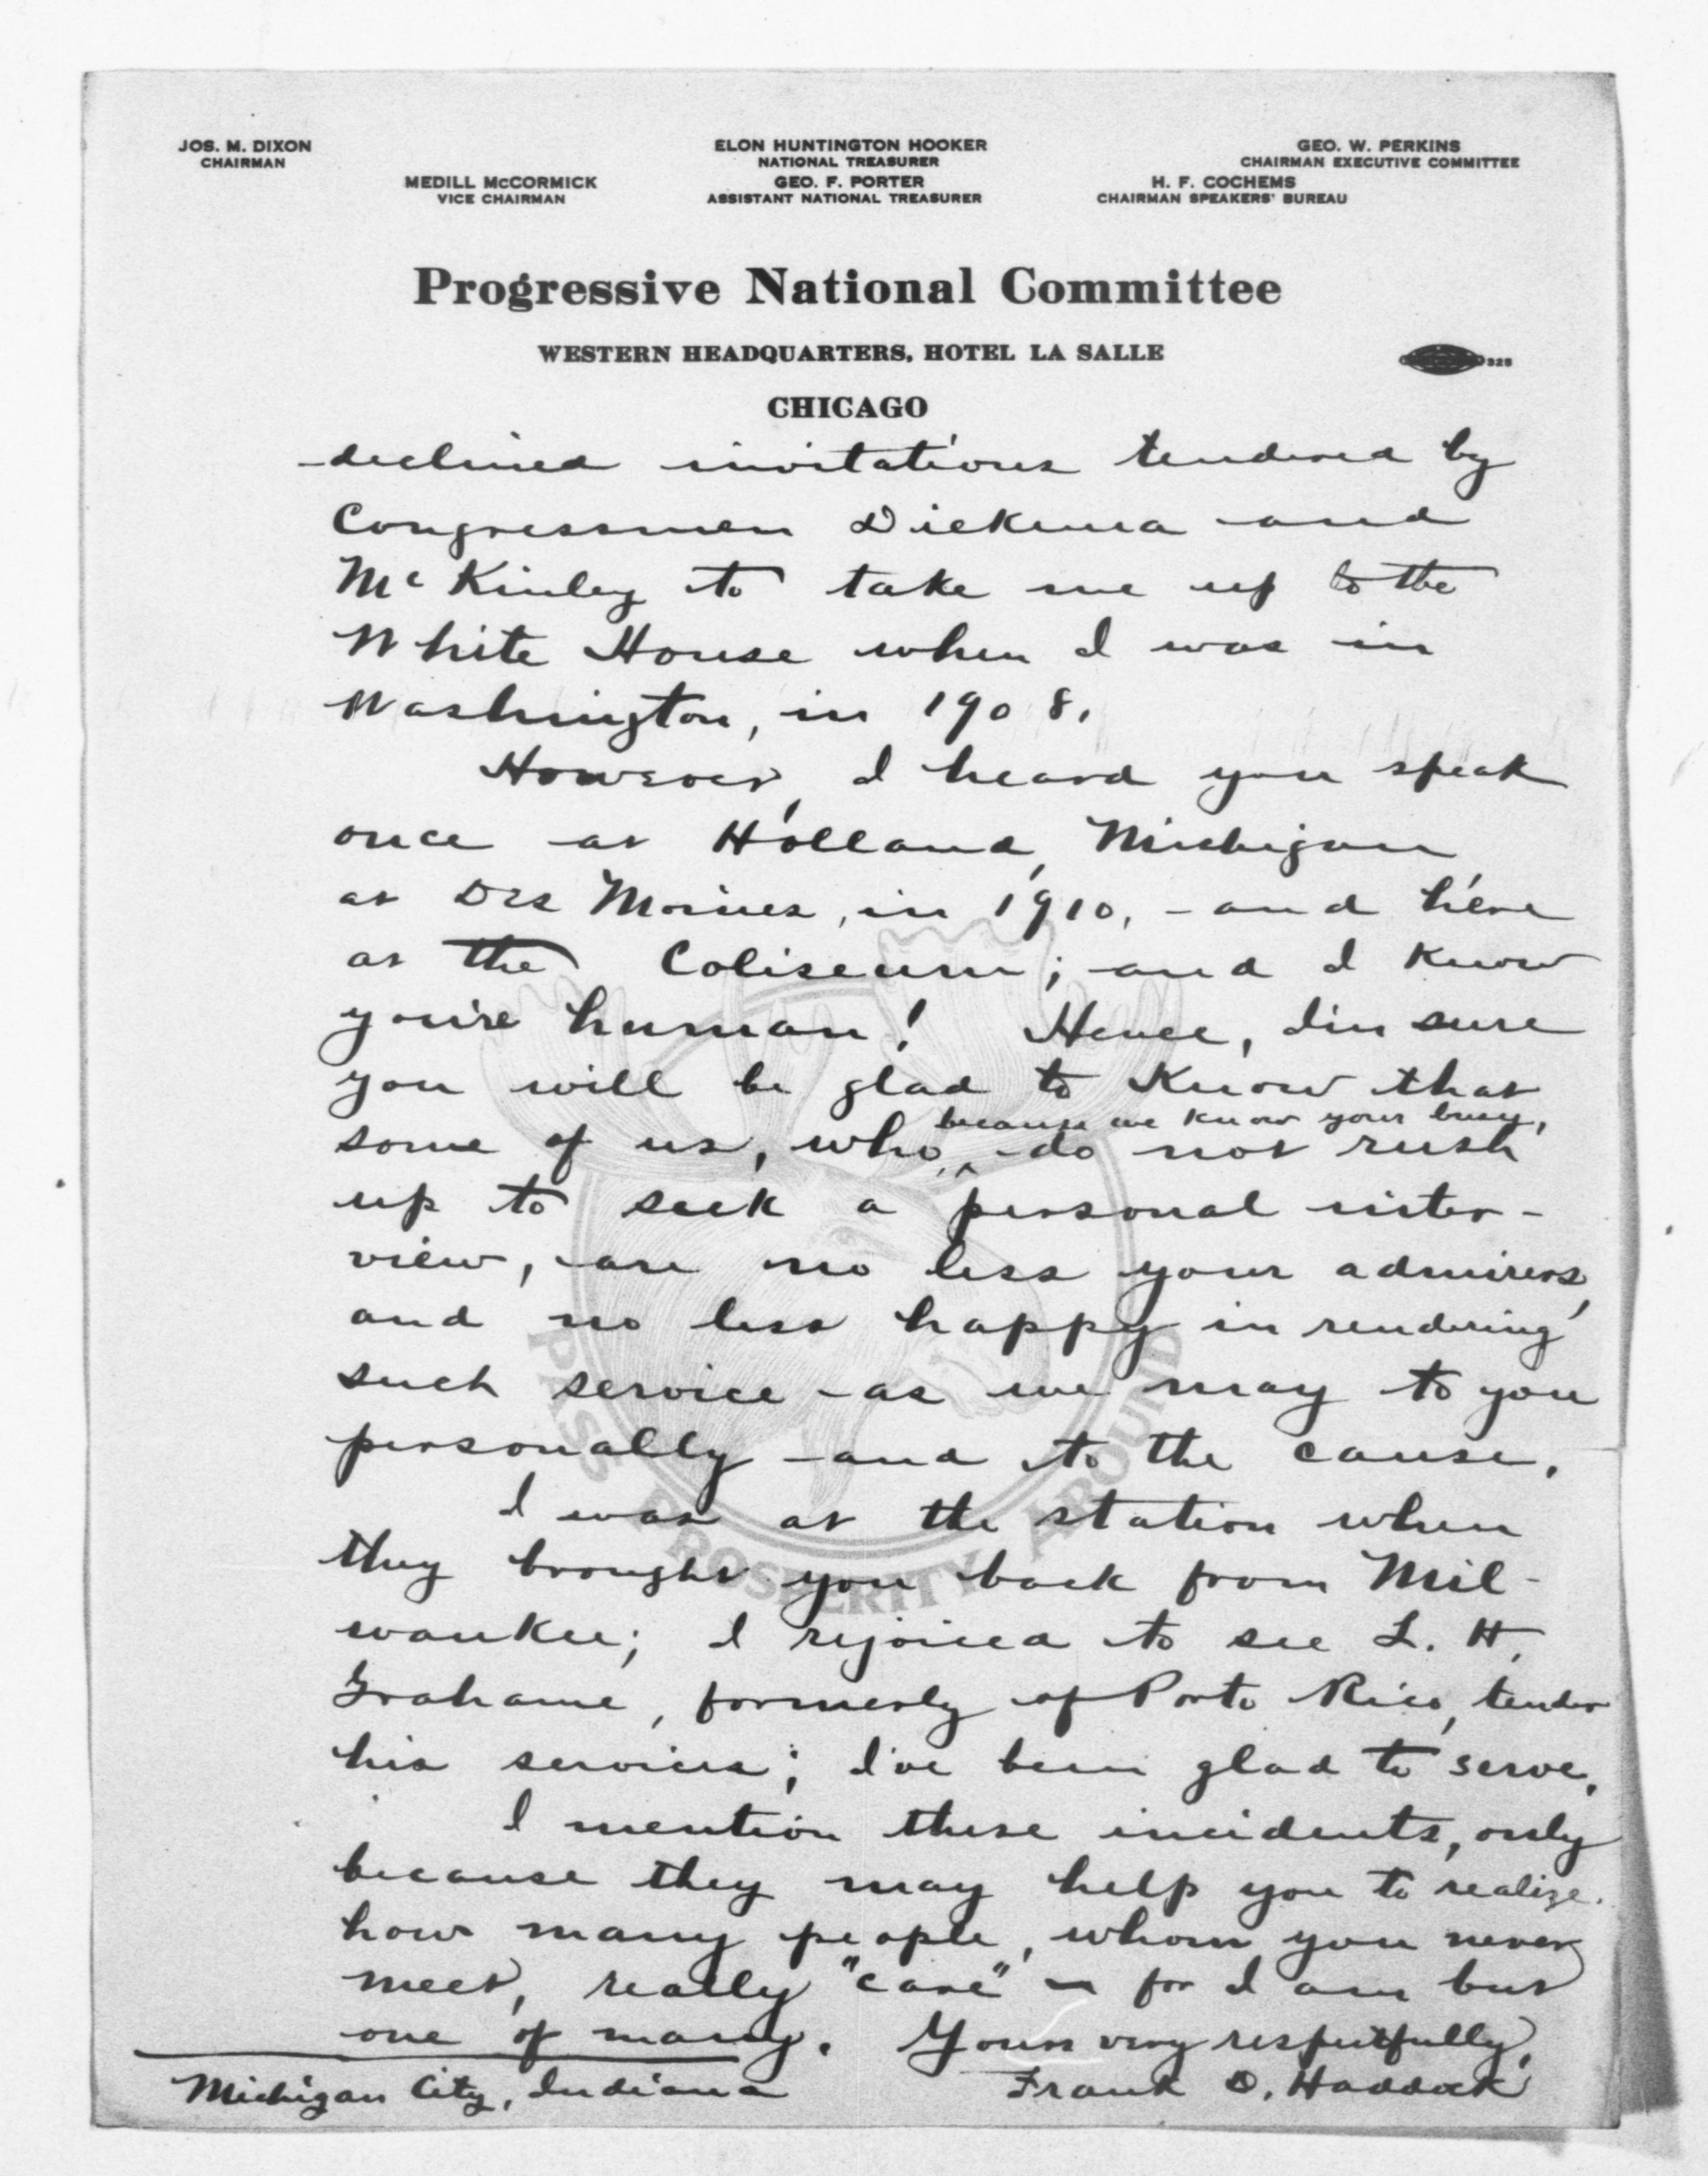 JOS. M. DIXON
CHAIRMAN
MEDILL McCORMICK
VICE CHAIRMAN
ELON HUNTINGTON HOOKER
NATIONAL TREASURER
GEO. F. PORTER
ASSISTANT NATIONAL TREASURER
GEO. W. PERKINS
CHAIRMAN EXECUTIVE COMMITTEE
H. F. COCHEMS
CHAIRMAN SPEAKERS' BUREAU
Progressive National Committee
WESTERN HEADQUARTERS, HOTEL LA SALLE
325
CHICAGO
declined invitations tendered by
Congressmen Diekema and
McKinley to take me up to the
White House when I was in
Washington, in 1908.
However, I heard you speak
once at Holland, Michigan
at Des Moines, in 1910, - and here
at the Coliseum; and I know
you're human! Hence, I'm sure
you will be glad to know that
because we know your busy,
some of us, who, ^ do not rush
up to seek a personal inter-
view, are no less your admirers,
and no less happy in rendering
such service as we may to you
personally and to the cause.
I was at the station when
they brought you back from Mil-
waukee; I rejoiced to see L. H.
Grahame, formerly of Porto Rico, tender
his services; I've been glad to serve.
I mention these incidents, only
because they may help you to realize
how many people, whom you never
meet, really "care" - for I am but
one of many. Yours very respectfully,
Michigan City, Indiana Frank D. Haddock
PASS PROSPERITY AROUND